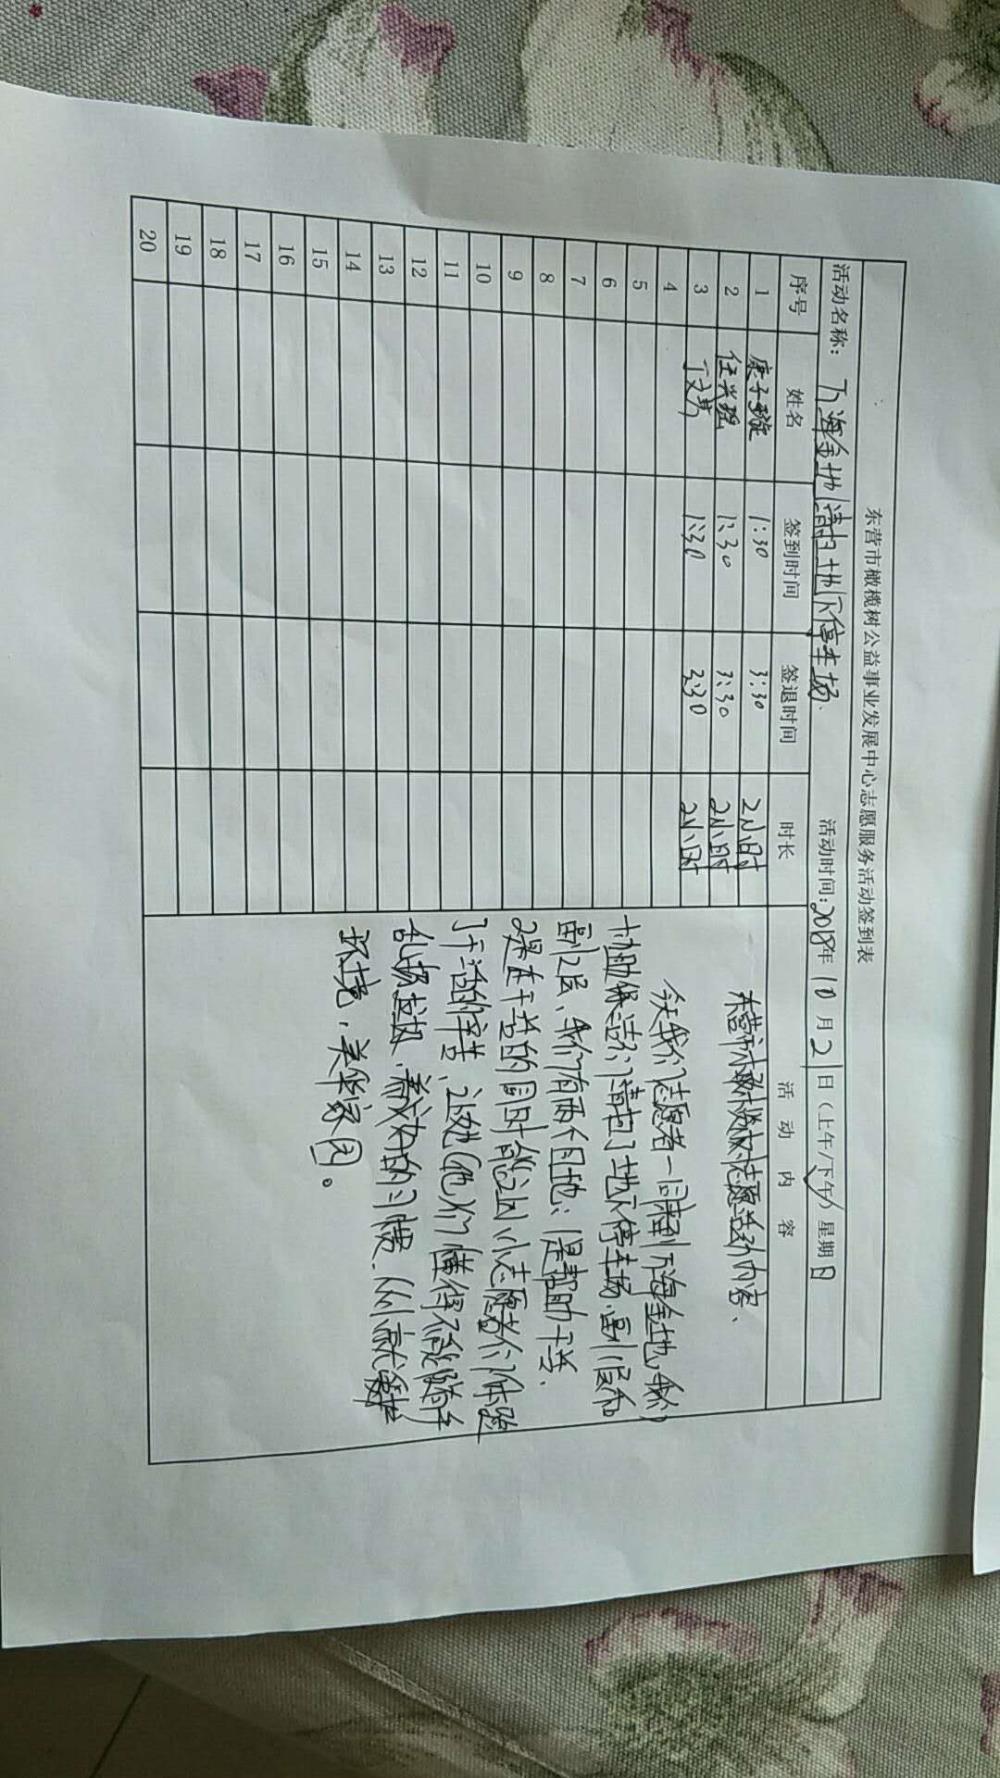 东营市橄榄树公益事业发展中心志愿服务活动签到表
活动名称：万海金地清扫地下停车场 活动时间：2018年10月21日（上午/下午）星期日
序号 姓名 签到时间 签退时间 时长 活动内容
1 康子璇 1:30 3:30 2小时
2 任兴瑶 1:30 3:30 2小时
3 丁文博 1:30 3:30 2小时
4
5
6
7
8
9
10
11
12
13
14
15
16
17
18
19
20
东营市橄榄树志愿活动内容、
今天我们志愿者一同来到万海金地，我们
协助保洁们清扫了地下停车场，副1层和
副2层、我们有两个目地：1是帮助干善、
2是在干善的同时能让小志愿者们体验
了干活的辛苦、让她（他）们懂得不能随手
乱扔垃圾、养成好的习惯、从就
环境，美华家园。